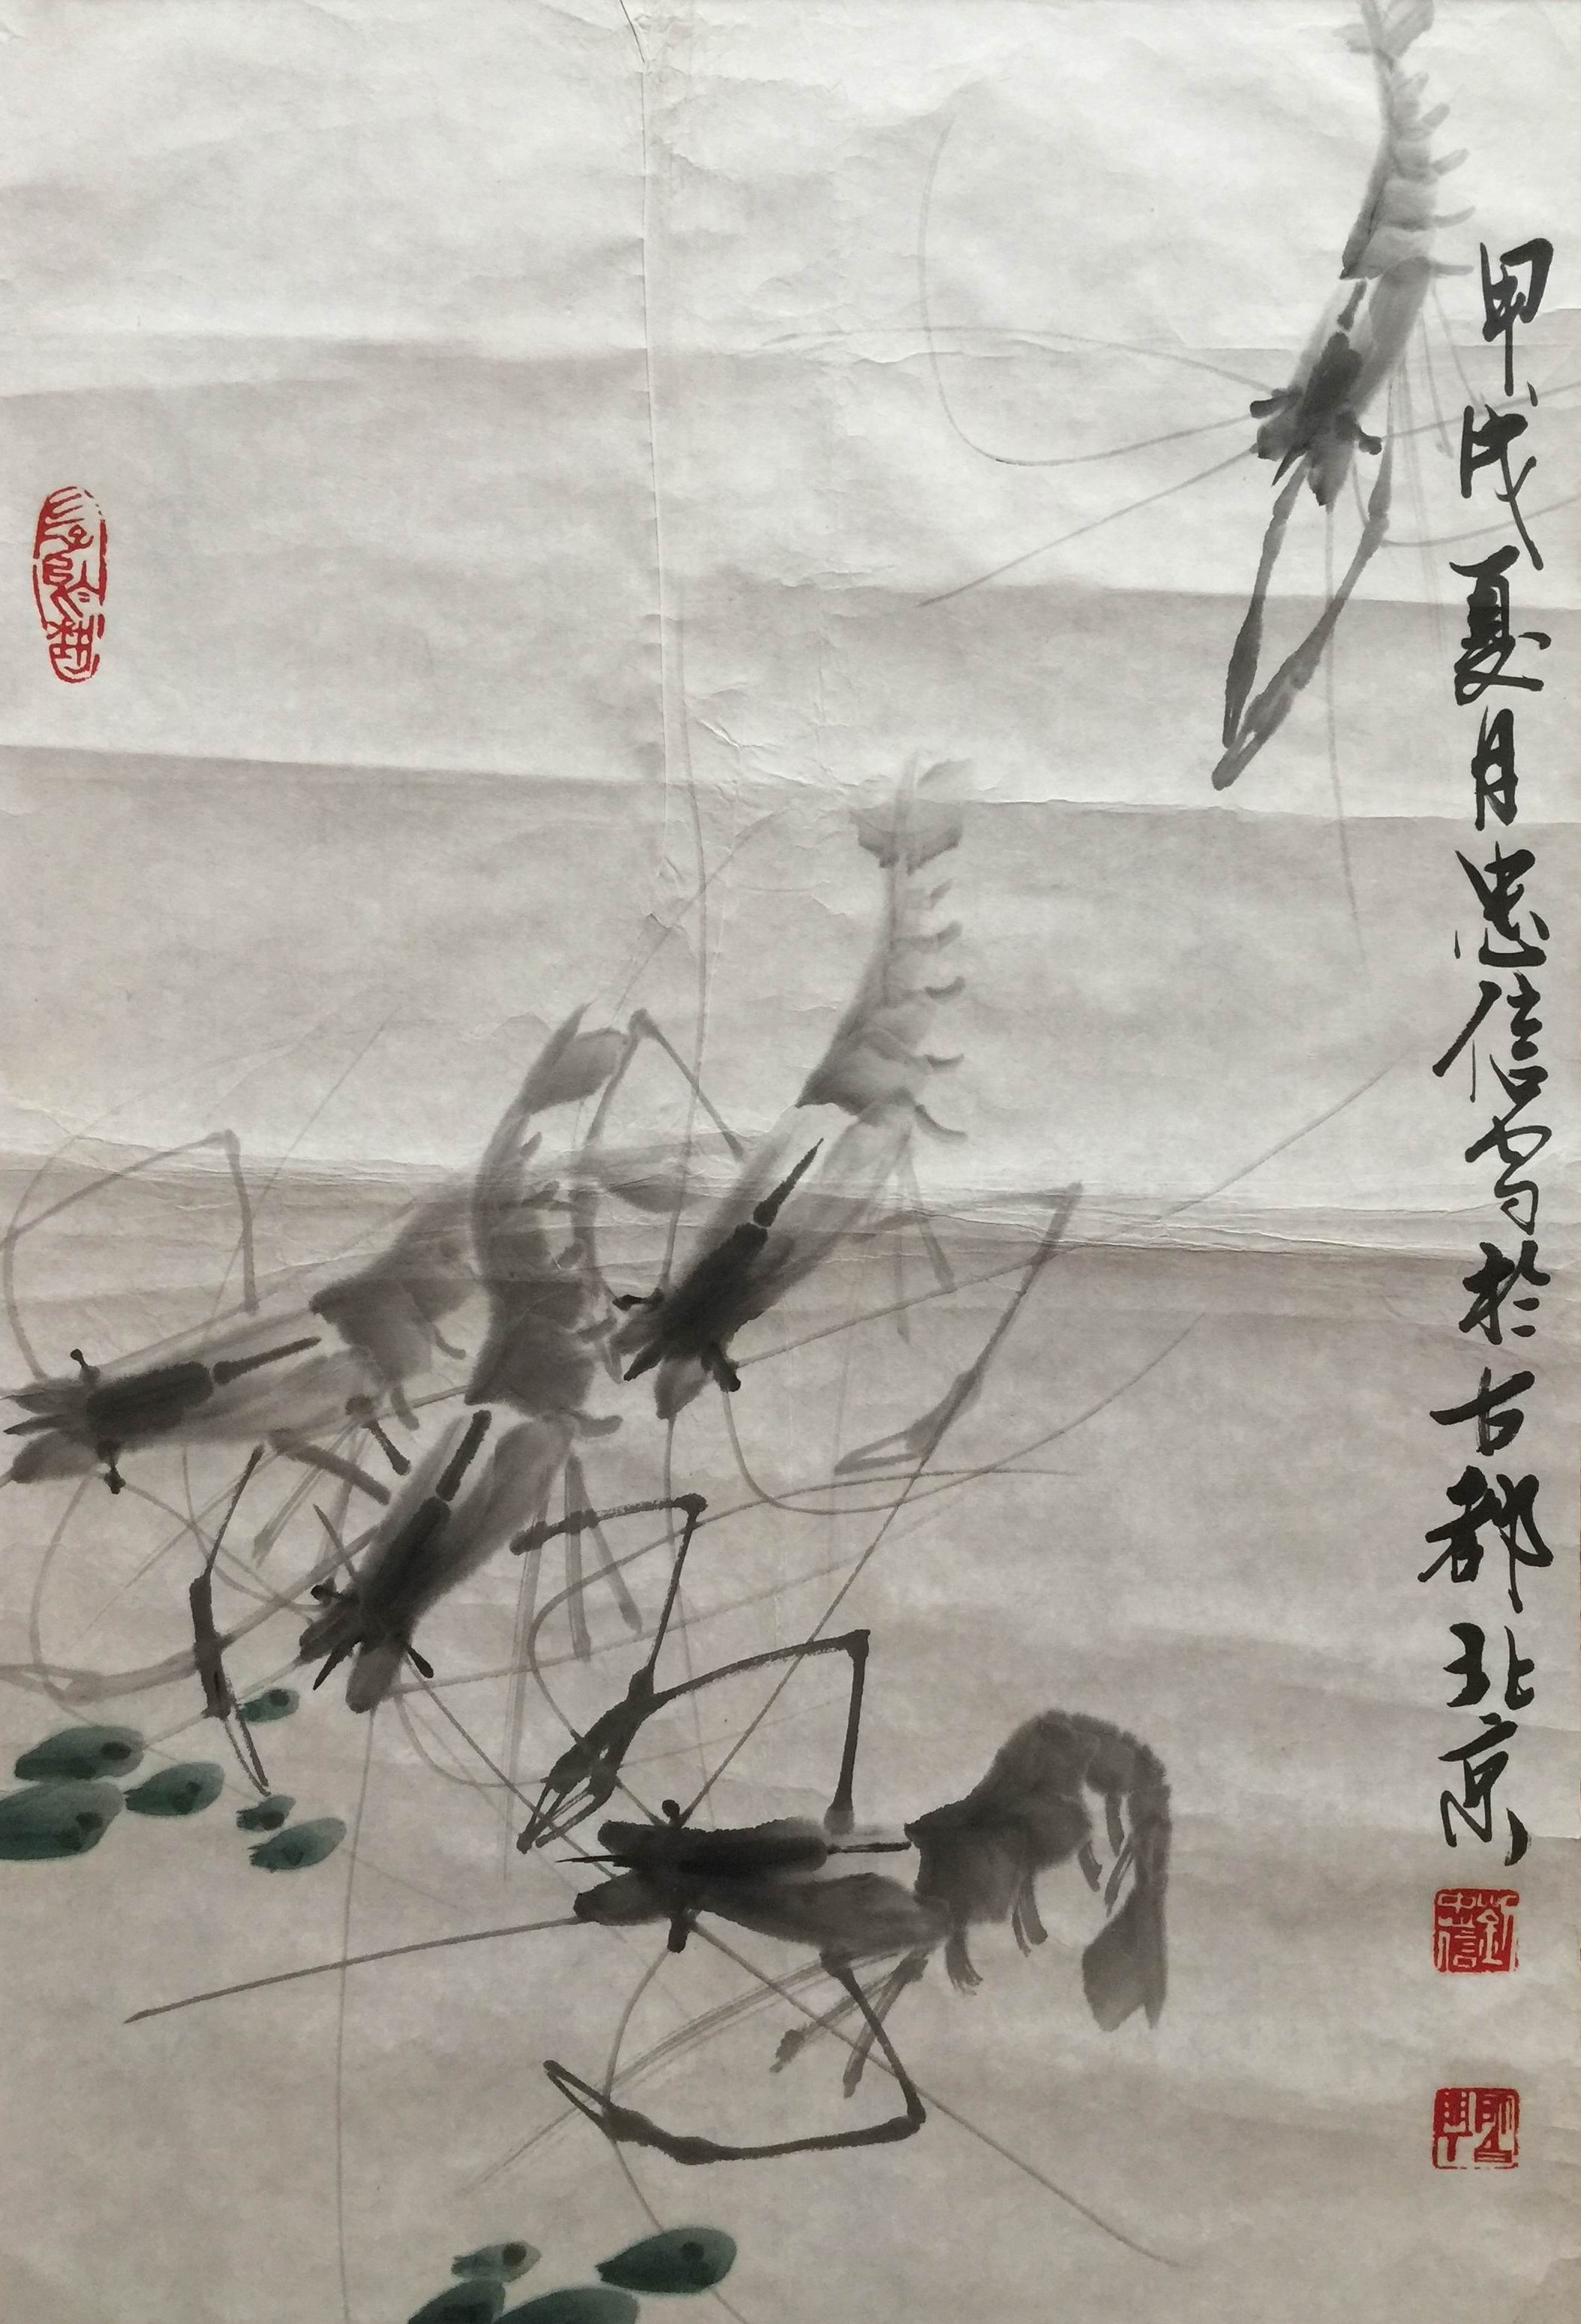 甲戌夏月忠信写於古都北京
劉忠信